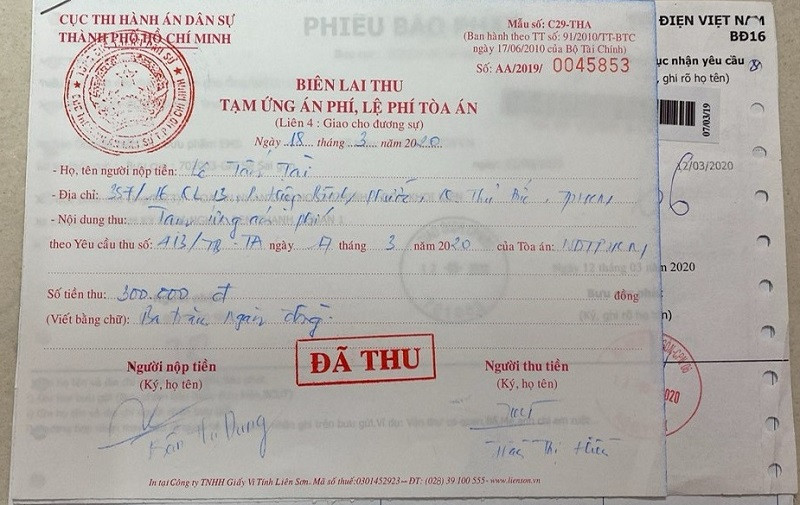 CỤC THI HÀNH ÁN DÂN SỰ
THÀNH PHỐ HỒ CHÍ MINH
Mẫu số: C29-THA
(Ban hành theo TT số: 91/2010/TT-BTC
ngày 17/06/2010 của Bộ Tài Chính)
Số: AA/2019/ 0045853
BIÊN LAI THU
TẠM ỨNG ÁN PHÍ, LỆ PHÍ TÒA ÁN
(Liên 4 : Giao cho đương sự)
Ngày 18 tháng 3 năm 2020
- Họ, tên người nộp tiền: Lê Tấn Tài
- Địa chỉ: 357/16 KL 13 P. Hiệp Bình Phước Q Thủ Đức, TPHCM
- Nội dung thu: Tạm ứng án phí
theo Yêu cầu thu số: 413/TB-TA ngày tháng 3 năm 2020 của Tòa án: NDTPHCM
Số tiền thu: 300.000 đ đồng
(Viết bằng chữ): Ba trăm ngàn đồng.
Người nộp tiền
(Ký, họ tên)
ĐÃ THU
Người thu tiền
(Ký, họ tên)
Trần Thị Hiền
In tại Công ty TNHH Giấy Vi Tính Liên Sơn. Mã số thuế:0301452923 – ĐT: (028) 39 100 555 - www.lienson.vn
ĐIỆN VIỆT NAM
BĐ16
nhận yêu cầu
, ghi rõ họ tên)
07/03/19
12/03/2020
2020